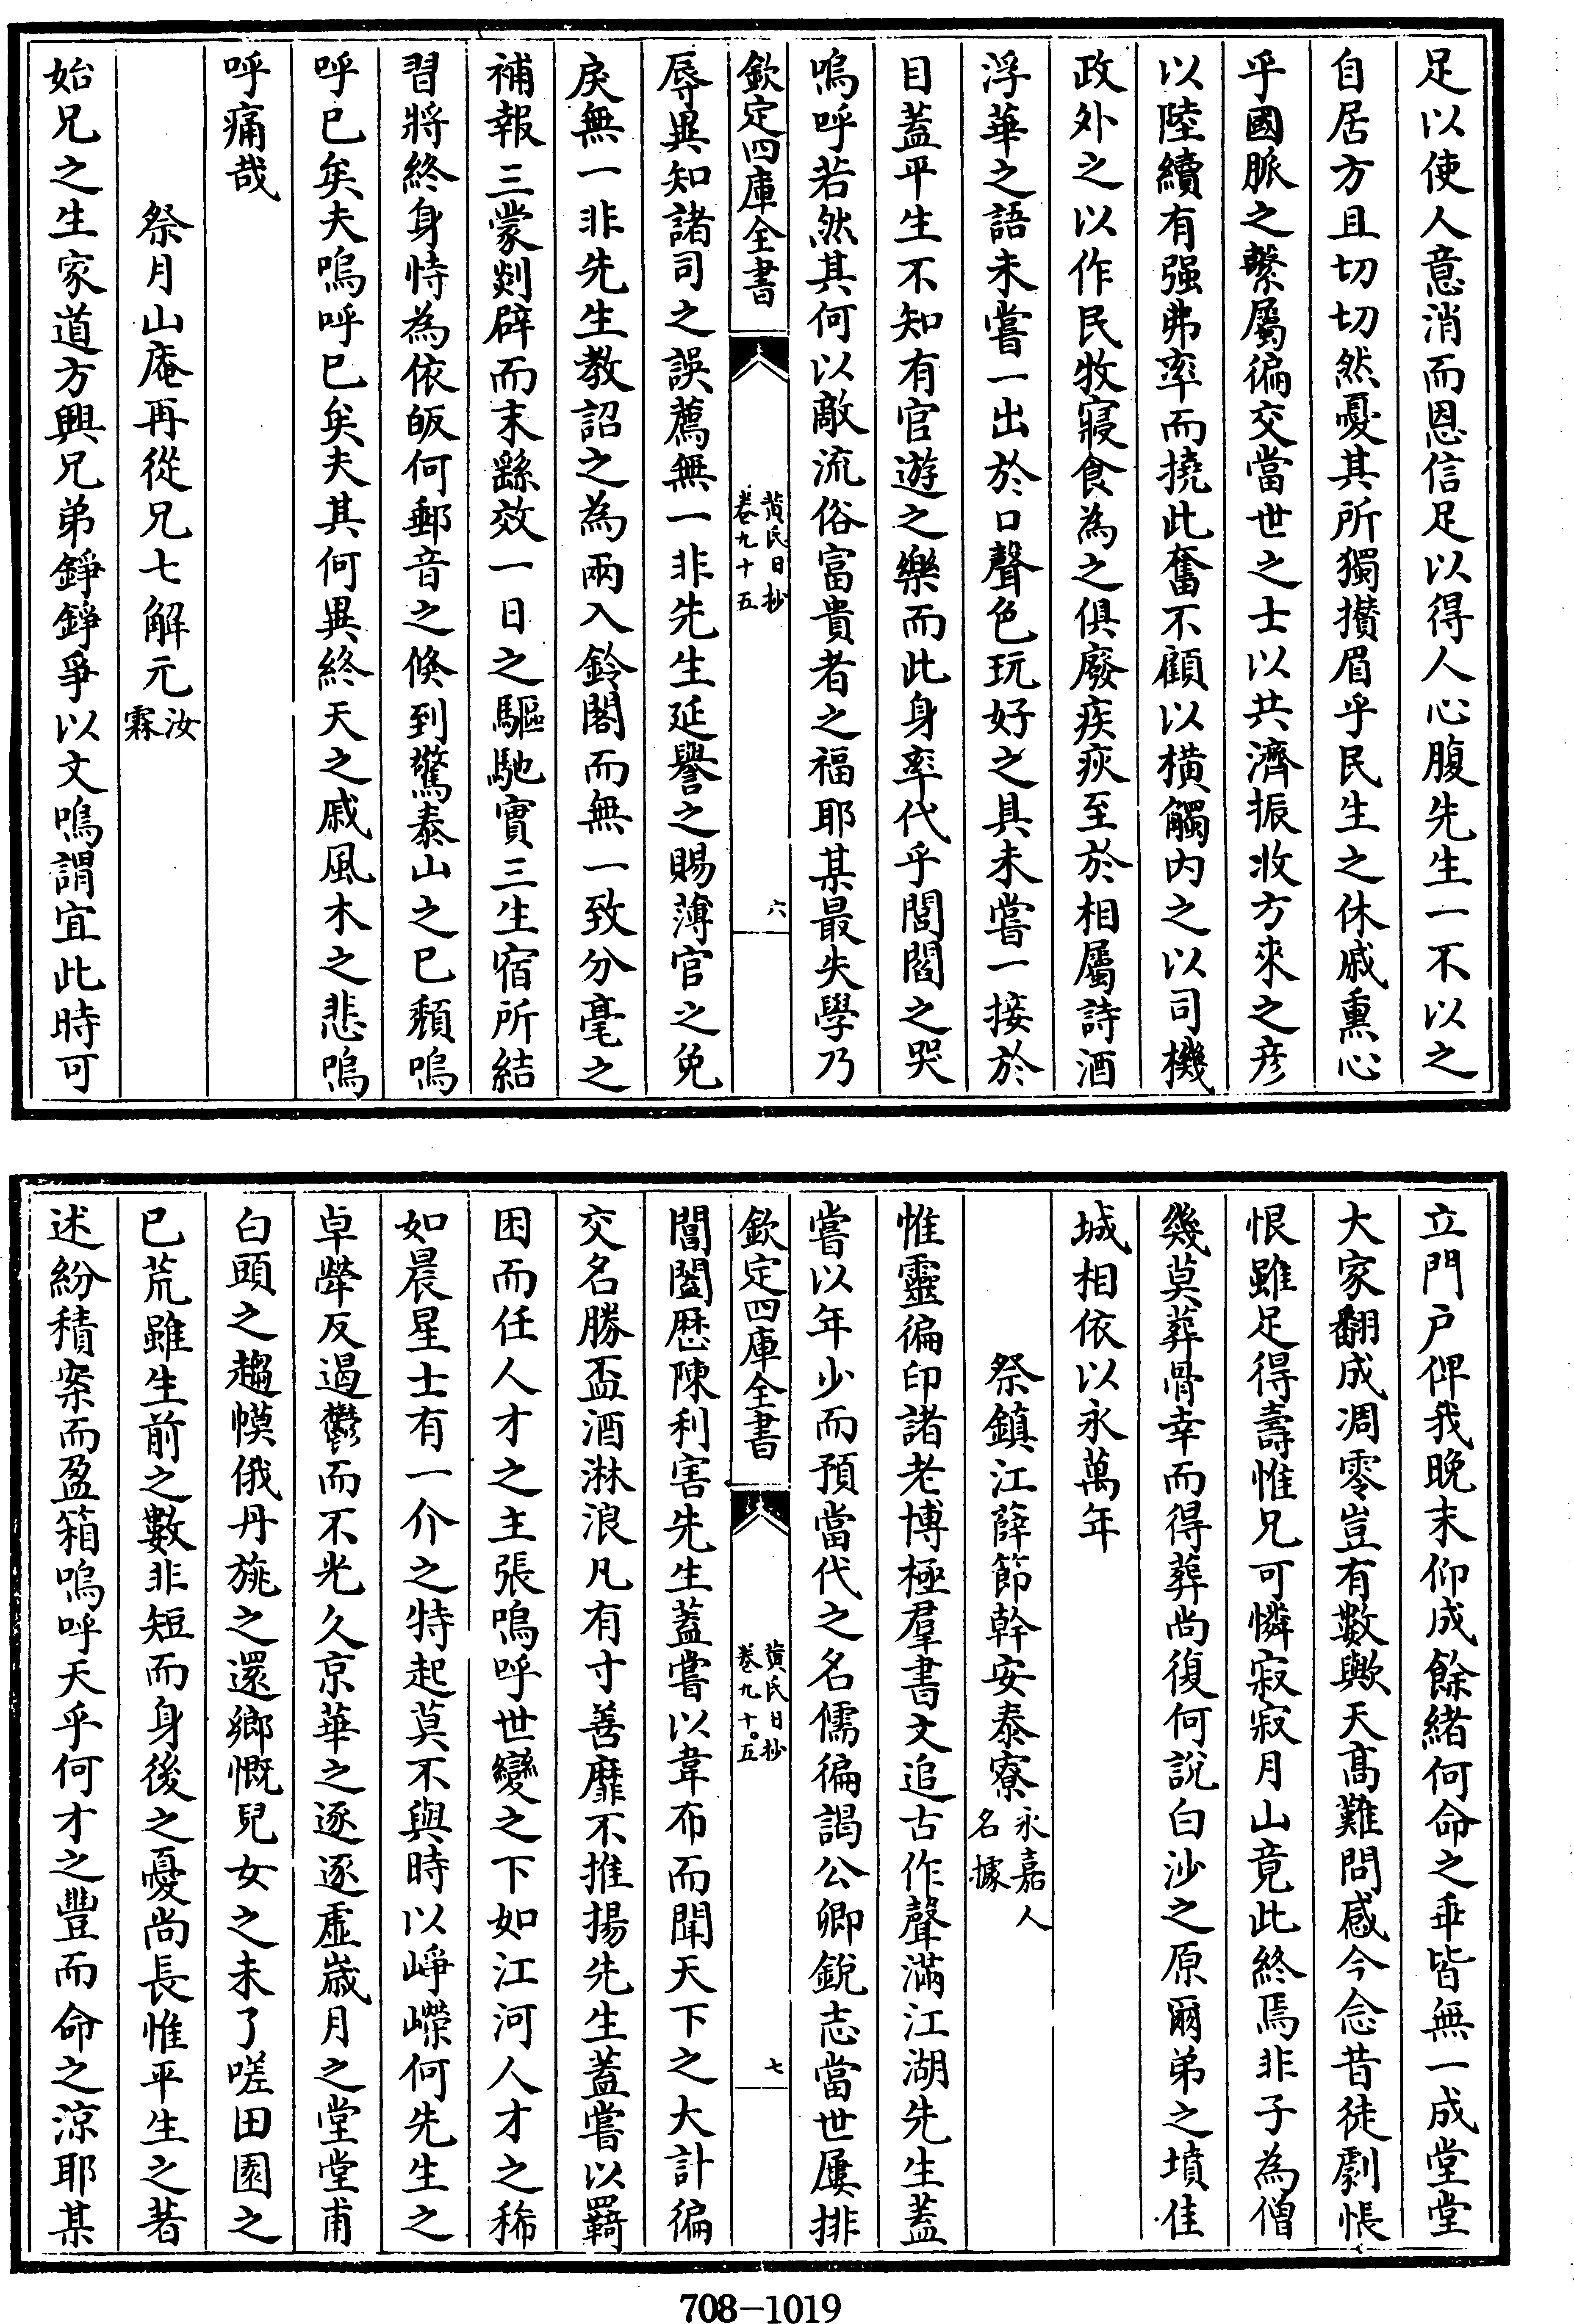 足以使人意消而恩信足以得人心腹先生一不以之
自居方且切切然憂其所獨攅眉乎民生之休戚熏心
乎國脈之繫屬徧交當世之士以共濟振收方來之彦
以陸續有强弗率而撓此奮不顧以横觸内之以司機
政外之以作民牧寢食為之俱廢疾疢至於相屬詩酒
浮華之語未嘗一出於口聲色玩好之具未嘗一接於
目蓋平生不知有官遊之樂而此身率代乎閭閻之哭
嗚呼若然其何以敵流俗富貴者之福耶某最失學乃
欽定四庫全書
黄氏日抄
卷九十五
六
辱異知諸司之誤薦無一非先生延譽之賜薄官之免
戾無一非先生教詔之為兩入鈴閣而無一致分毫之
補報三蒙剡辟而末繇效一日之驅馳實三生宿所結
習將終身恃為依皈何郵音之倐到驚泰山之已頽嗚
呼已矣夫嗚呼已矣夫其何異終天之戚風木之悲嗚
呼痛哉
祭月山庵再從兄七解元汝霖
始兄之生家道方興兄弟錚錚爭以文鳴謂宜此時可
立門户俾我晚末仰成餘緒何命之乖皆無一成堂堂
大家翻成凋零豈有數歟天髙難問感今念昔徒劇悵
恨雖足得壽惟兄可憐寂寂月山竟此終焉非子為僧
幾莫葬骨幸而得葬尚復何說白沙之原爾弟之墳佳
城相依以永萬年
祭鎮江薛節幹安泰寮永嘉人名據
惟靈徧印諸老博極羣書文追古作聲滿江湖先生蓋
嘗以年少而預當代之名儒徧謁公卿銳志當世屢排
欽定四庫全書
黄氏日抄
卷九十五
七
閶闔歴陳利害先生蓋嘗以韋布而聞天下之大計徧
交名勝盃酒淋浪凡有寸善靡不推揚先生蓋嘗以羇
困而任人才之主張嗚呼世變之下如江河人才之稀
如晨星士有一介之特起莫不與時以崢嶸何先生之
卓犖反遏鬱而不光久京華之逐逐虛嵗月之堂堂甫
白頭之趨幙俄丹旐之還鄉慨兒女之未了嗟田園之
已荒雖生前之數非短而身後之憂尚長惟平生之著
述紛積案而盈箱嗚呼天乎何才之豐而命之涼耶某
708-1019